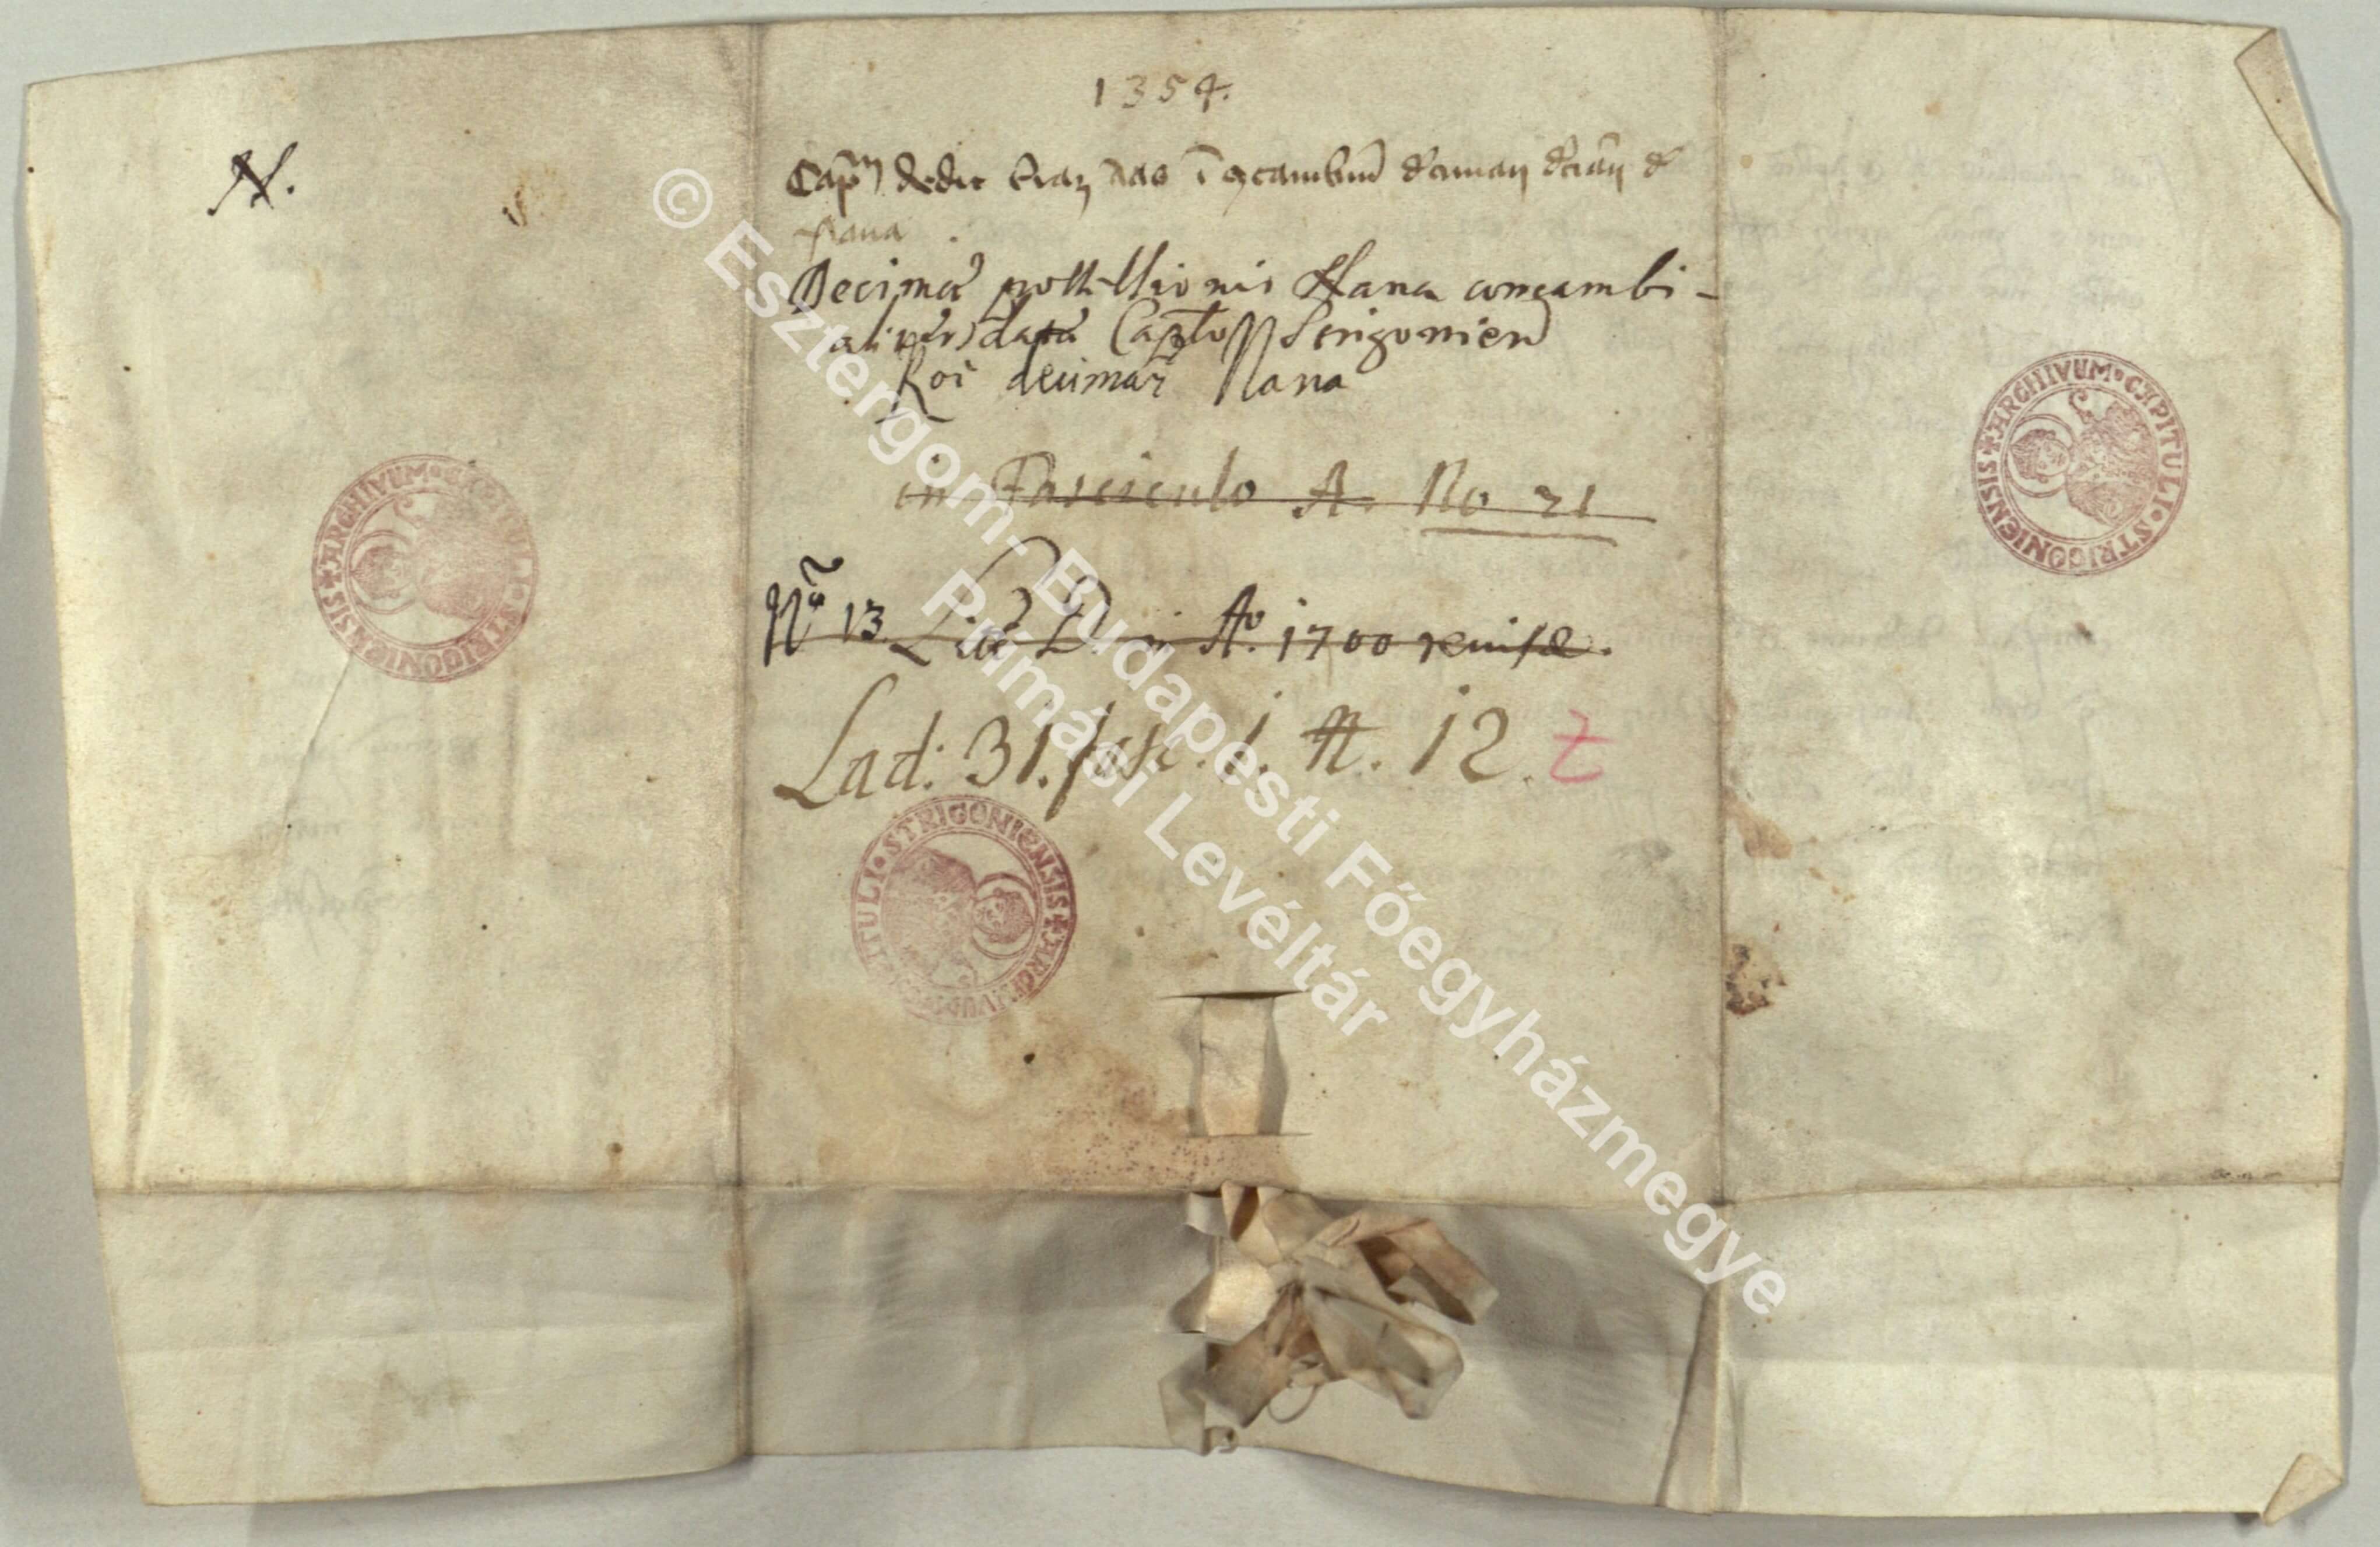 1354.
N.
Cap̃m dedit t̃ras ĩ decimaꝝ
Nana
Decimæ possessionis Nana concambi-
aliter datæ Capĩlo Strigonien
Roē decimar̃ Nana
in Fasciculo A. No 21
Nr̃o 13. Lad D. Ao. 1700 revisæ.
Lad: 31. fasc. 1. #. 12. Z
ARCHIVUM • CAPITULI • STRIGONIENSIS
ARCHIVUM • CAPITULI • STRIGONIENSIS
ARCHIVUM • CAPITULI • STRIGONIENSIS
© Esztergom-Budapesti Főegyházmegye
Prímási Levéltár